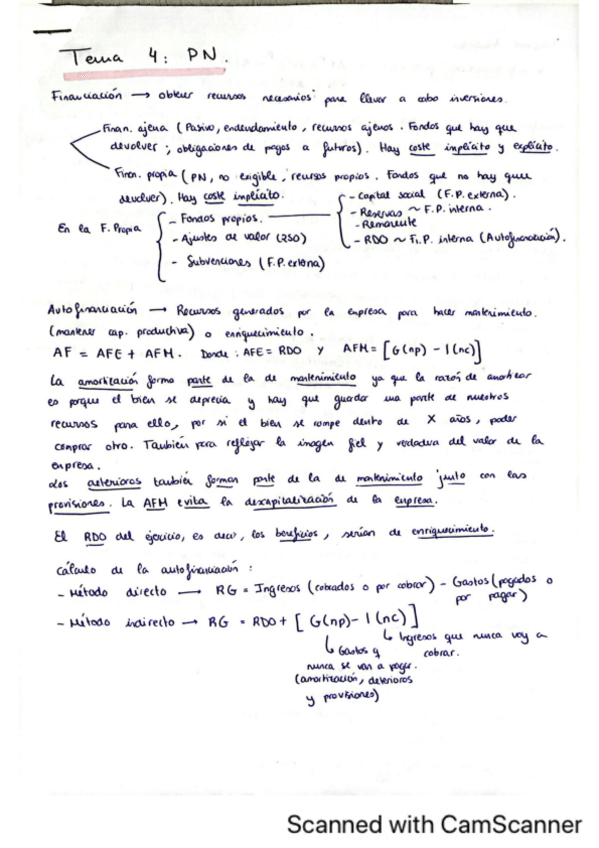 Tema 4: PN.
Financiación → obtener recursos necesarios para llevar a cabo inversiones.
Finan. ajena (Pasivo, endeudamiento, recursos ajenos. Fondos que hay que
devolver; obligaciones de pagos a futuros). Hay coste implícito y explícito.
Finan. propia (PN, no exigible, recursos propios. Fondos que no hay que
devolver). Hay coste implícito.
En la F. Propia
- Fondos propios.
- Ajustes de valor (250)
- Subvenciones (F.P. externa)
- Capital social (F.P. externa).
- Reservas ~ F.P. interna.
- Remanente
- RDO ~ Fi.P. interna (Autofinanciación).
Autofinanciación → Recursos generados por la empresa para hacer mantenimiento.
(mantener cap. productiva) o enriquecimiento.
AF = AFE + AFM. Donde: AFE = RDO y AFM = [G(np) - I(nc)]
La amortización forma parte de la de mantenimiento ya que la razón de amortizar
es porque el bien se deprecia y hay que guardar una parte de nuestros
recursos para ello, por si el bien se rompe dentro de X años, poder
comprar otro. También para reflejar la imagen fiel y verdadera del valor de la
empresa.
Los deterioros también forman parte de la de mantenimiento junto con las
provisiones. La AFM evita la descapitalización de la empresa.
El RDO del ejercicio, es decir, los beneficios, serían de enriquecimiento.
Cálculo de la autofinanciación:
- Método directo → RG = Ingresos (cobrados o por cobrar) - Gastos (pagados o
por pagar)
- Método indirecto → RG = RDO + [G(np) - I(nc)]
Ingresos que nunca voy a
cobrar.
Gastos q
nunca se van a pagar.
(amortización, deterioros
y provisiones)
Scanned with CamScanner